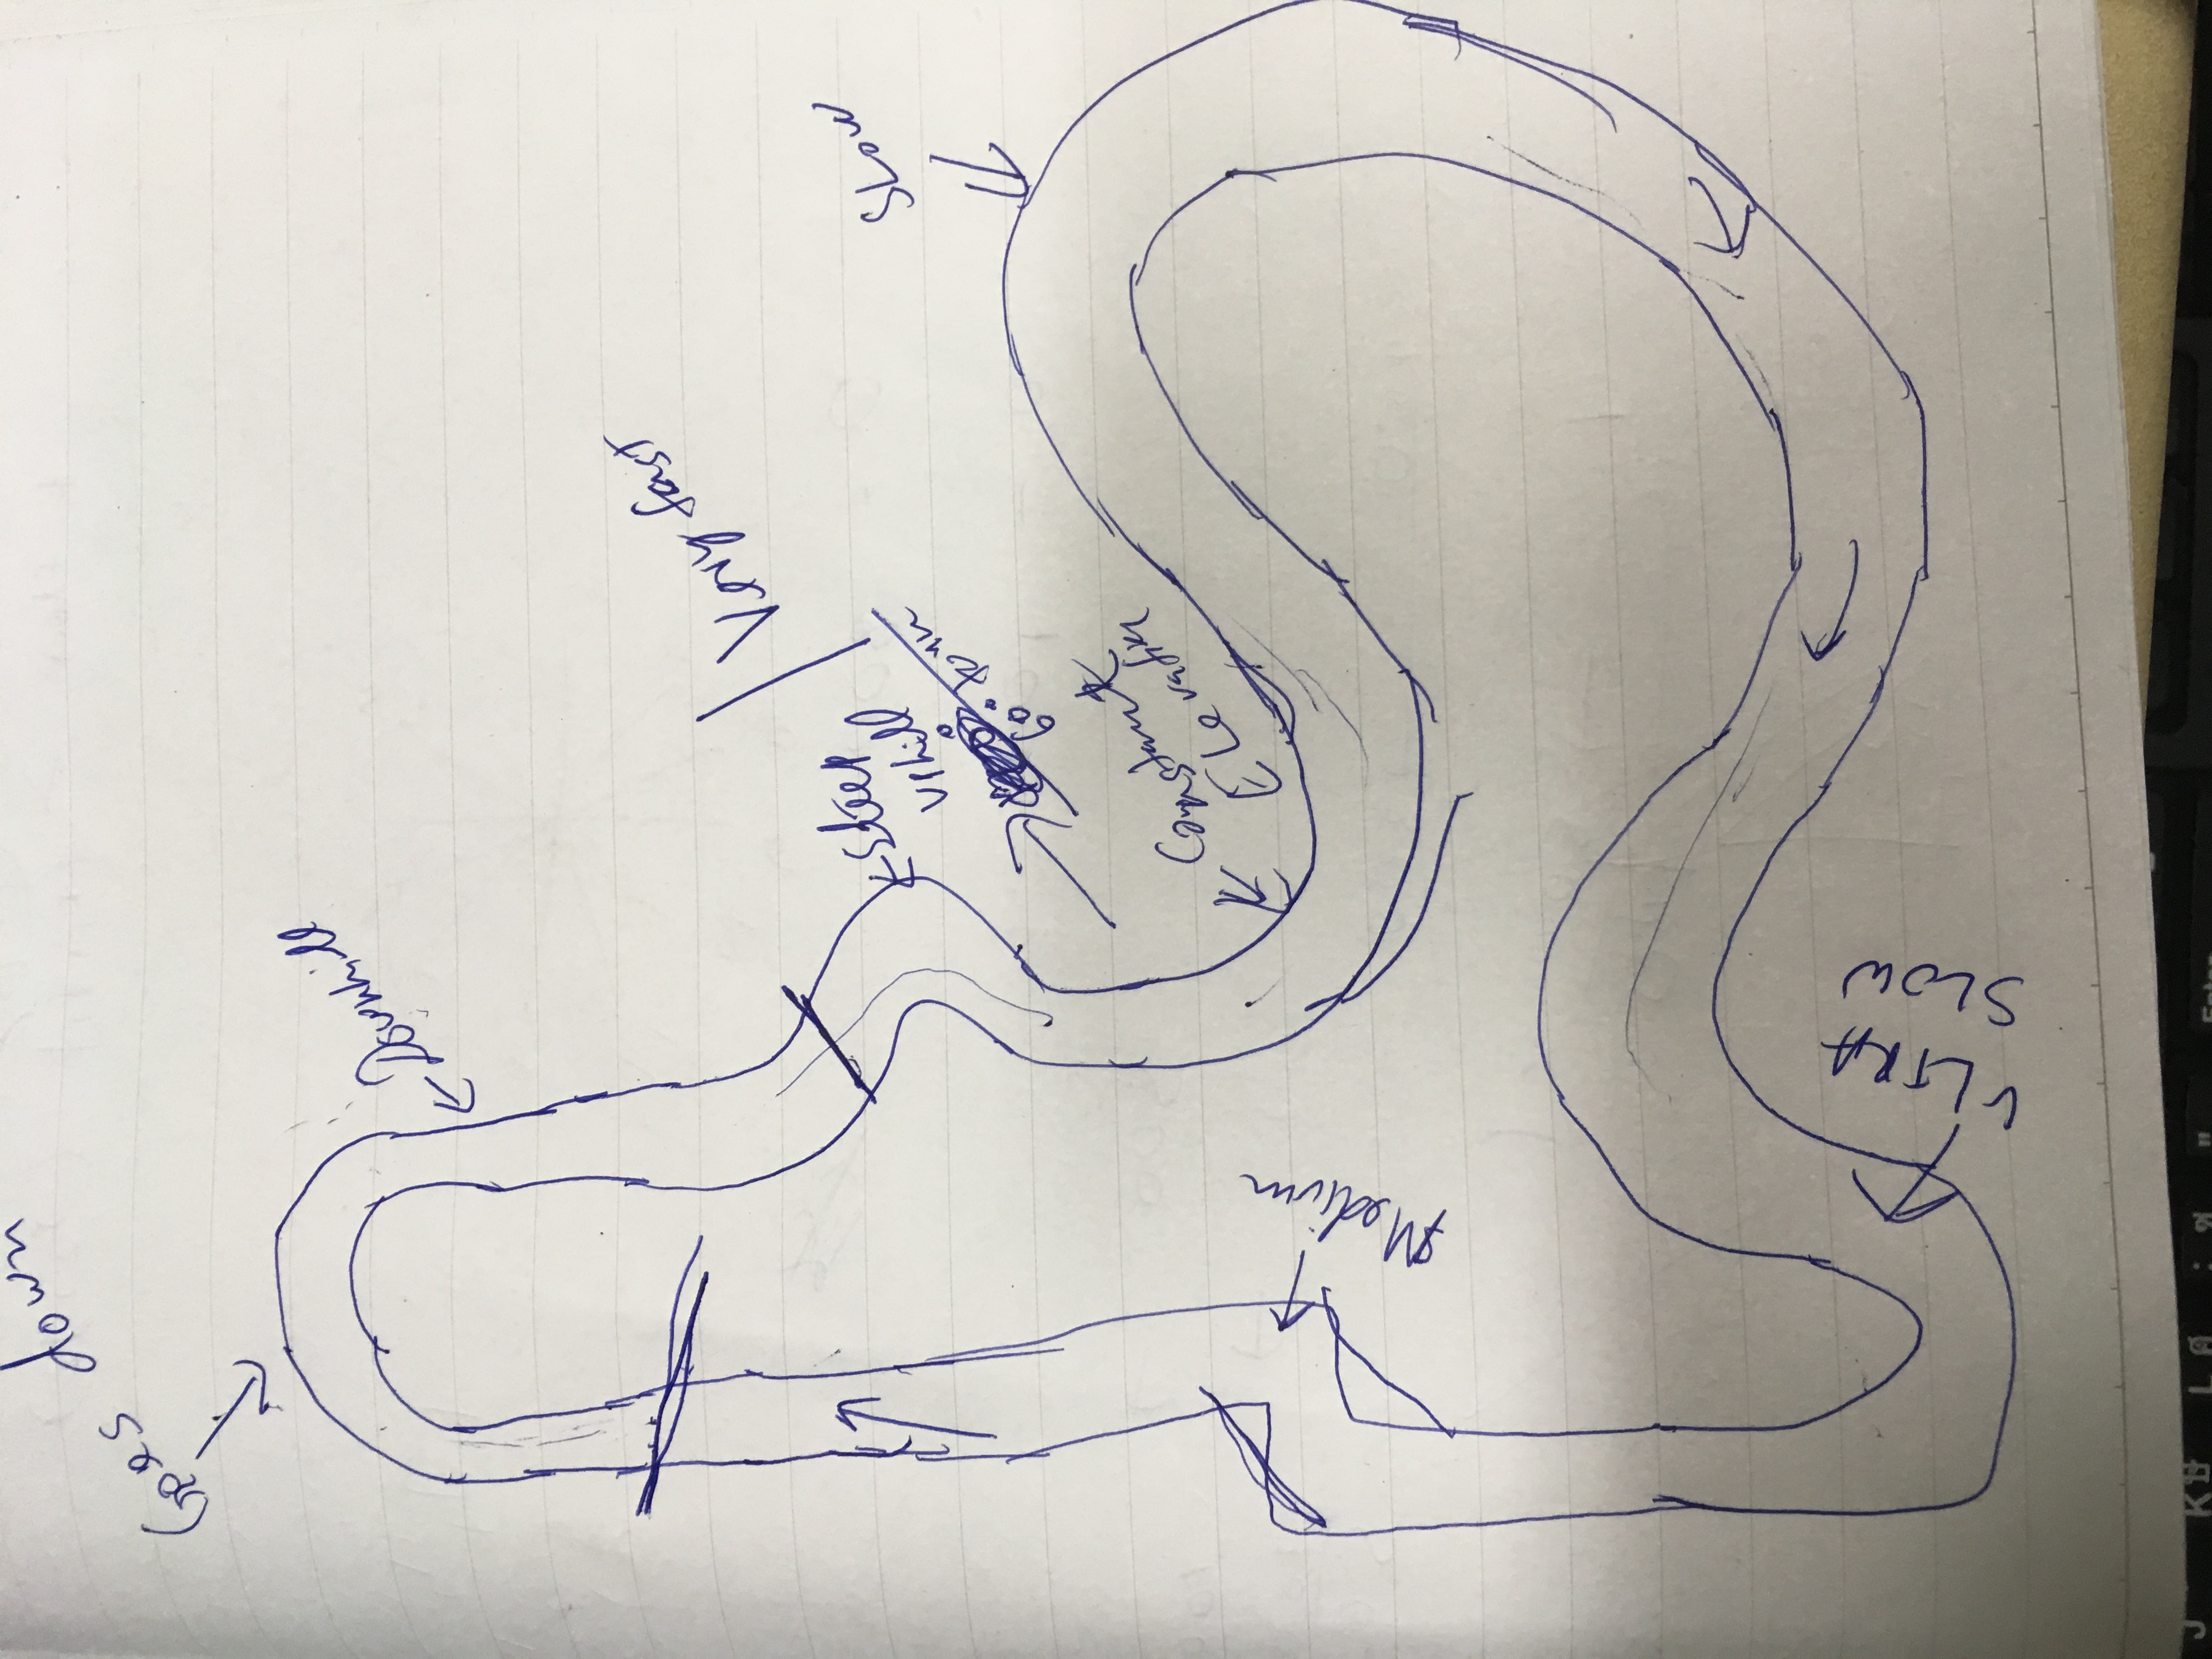 Goes down
Downhill
Very fast
Steep
uphill
60° down
SLOW
Constant
Elevation
Medium
ULTRA
SLOW
J
K
L
:
"
Enter